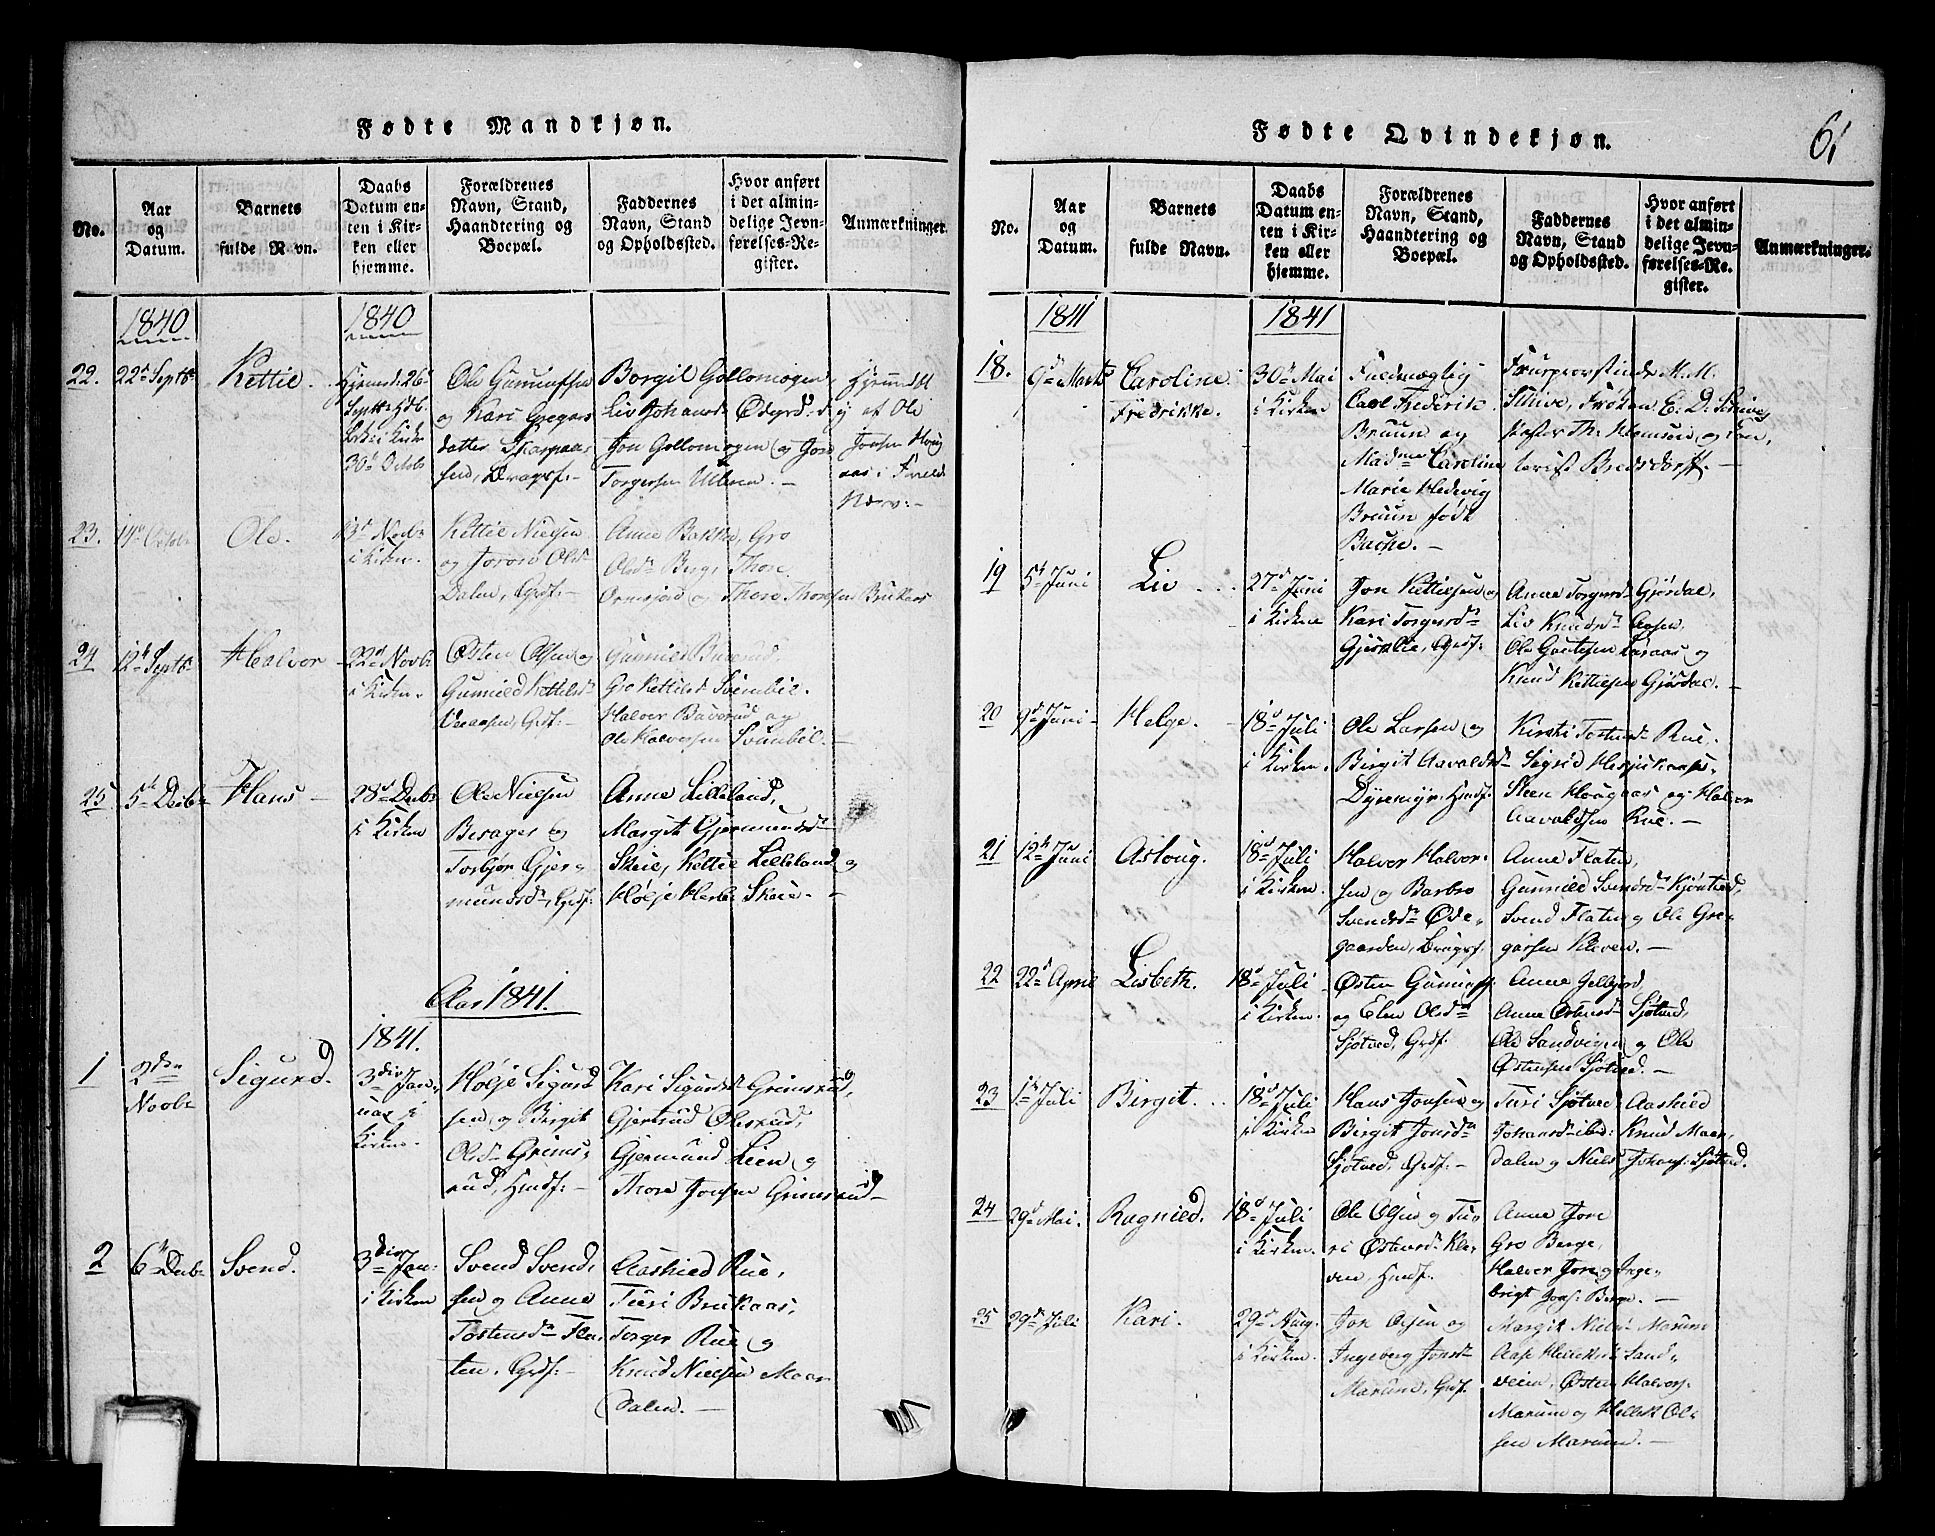 Fødte Mandkjøn.
No.
Aar
og
Datum.
Barnets
fulde Navn.
Daabs
Datum en-
ten i Kir-
ken eller
hjemme.
Forældrenes
Navn, Stand,
Haandtering og
Boepæl.
Faddernes
Navn, Stand
og Opholdssted.
Hvor anført
i det almin-
delige Jevn-
førelses-Re-
gister.
Anmærkninger.
1840
1840
22.
22d Septb
Kettil.
Hjemd. 26
30d Octob
Ole Gunnulfsen
og Kari Gregars
datter Skarpaas
Borgil Gollomogen,
Liv Johansd Ødegrd:
Jon Gollomogen og Jon
Torgersen
Hjemdbt
af Ole
Jonsen Houg
aas i
Nærv:-
23.
14d Octob
Ole.
13d Novb
i Kirken.
Kettil Nielsen
og Joron Olsd
Dalen, Grdf:-
Anne Bakke, Gro
Olsdr Berge, Thore
Ormsjord og Thore Thorsen Brukaas
24
12t Septb
Halvor
22d Novb
i Kirken.
Østen Olsen og
Gunnild Kettilsd
Veraasen, Grdf:-
Gunnild Baverud,
Gro Kettilsd Svimbil.
Halvor Baverud og
Ole Halvorsen Svimbil.-
25
5t Decb
Hans
28d Decb
i Kirken
Ole Nielsen
Berager og
Torbjør Gjer-
mundsd, Grdf:
Anne Lilleland,
Margit Gjermundsd
Skeie, Kettil Lilleland og
Hølje Herbr Skeie.-
Aar 1841.
1841.
1
2den
Novb
Sigurd.
3die Jan-
uar i
Kirken.
Hølje Sigurd
sen og Birgit
Olsdr Grims-
rud, Hmdf:-
Kari Sigurdsd Grimsrud,
Gjertrud Olesrud,
Gjermund Lien og
Thore Jonsen Grimsrud-
2
6t Decb
Svend.
3die Jan:
i Kirken
Svend Svend,
sen og Anne
Tostensdr Fla-
ten. Grdf:-
Aashild Rue,
Turi Brukaas,
Torger Rue og
Knud Nielsen Maar
dalen.-
Fødte Qvindekjøn.
61
No.
Aar
og
Datum.
Barnets
fulde Navn.
Daabs
Datum en-
ten i Kir-
ken eller
hjemme.
Forældrenes
Navn, Stand,
Haandtering og
Boepæl.
Faddernes
Navn, Stand
og Opholdssted.
Hvor anført
i det almin-
delige Jevn-
førelses-Re-
gister.
Anmærkninger.
1841
1841
18.
9d Marts
Caroline
Fredrikke.
30d Mai
i Kirken
Fuldmægtig
Carl Frederik
Bruun og
Madme Caroline
Marie Hedvig
Bruun født
Bache.-
Fruprovstinde M. M.
Schive, Frøken E. D. Schive,
Th. Klemsen, og
Bredsdorff.-
19
5t Juni
Liv
27d Juni
i Kirken
Jon Kettilsen og
Kari Torgersdr
Gjersklie, Grdf:
Anne Torgersd Gjørdal,
Liv Knudsdr Aasen,
Ole Goutesen Laraas og
Knud Kettilsen Gjørdal.-
20
9d Juni-
Helge.
18d Juli
i Kirken.
Ole Larsen og
Birgit Aavaldsdr
Dyremyr, Hmdf:
Kirsti Tostensd Rue,
Sigrid Herjuskaase,
Steen Hougaas og Halvor
Aavaldsen Rue.-
21
12t Juni
Aslaug.
18d Juli
i Kirken.
Halvor Halvor-
sen og Barbro
Svendsdr Øde-
gaarden, Brugsf.
Anne Flaten,
Gunnild Svendsdr Kjøntved,
Svend Flaten og Ole Gre-
garsen Kleven.-
22
22d April
Lisbeth.
18d Juli
i Kirken.
Østen Gunnulfs.
og Elen Olsdr
Sjøtved, Grdf:
Anne Gellejord,
Anne Østensdr Sjøtved,
Ole Sandvigen og Ole
Østensen Sjøtved.-
23
1t Juli
Birgit.
18d Juli
i Kirken
Hans Jonsen og
Birgit Jonsdr
Sjøtved, Grdf:-
Turi Sjøtved, Aashild
Johansdr ibid: Knud Maar,
dalen og Niels Johans: Sjøtved.
24
29d Mai.
Ragnild.
18d Juli
i Kirken.
Ole Olsen og Tu-
ri Østensdr Kle-
ven, Hmdf.
Anne Jore
Gro Berge,
Halvor Jore og Inge-
brigt Jons: Berge.-
25
29d Juli
Kari.
29d Aug.
i Kirken.
Jon Olsen og
Ingeborg Jonsdr
Marum, Grdf.
Margit Nielsd Marum
Aase Helleksd Sand-
veien, Østen Halvors.
Marum og Hellek Ol-
sen Marum.-